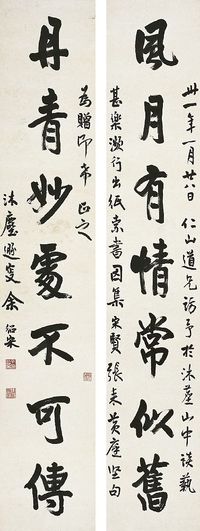 風月有情常似舊
卅一年一月廿八日仁山道兄訪予於沐塵山中談藝
甚樂瀕行出紙索書因集宋賢張耒黃庭堅句
丹青妙處不可傳
為贈即希正之
沐塵遯叟余紹宋